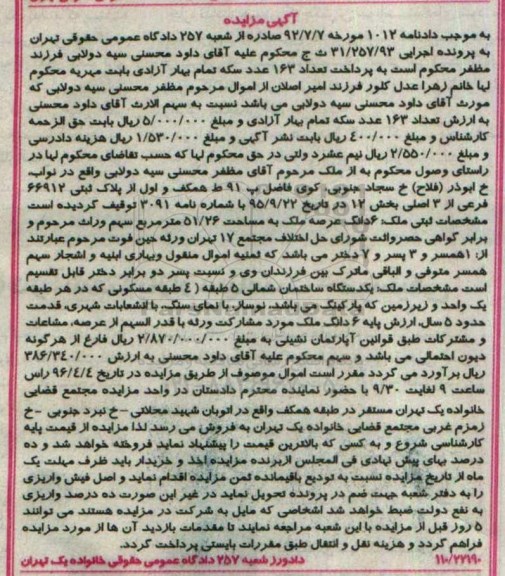 آگهی مزایده
به موجب دادنامه ۱۰۱۲ مورخه ۹۲/۷/۷ صادره از شعبه ۲۵۷ دادگاه عمومی حقوقی تهران
به پرونده اجرایی ۳۱/۲۵۷/۹۳ ث ج محکوم علیه آقای داود محسنی سیه دولابی فرزند
مظفر محکوم است به پرداخت تعداد ۱۶۳ عدد سکه تمام بهار آزادی بابت مهریه محکوم
لها خانم زهرا عدل کلور فرزند امیر اصلان از اموال مرحوم مظفر محسنی سیه دولابی که
مورث آقای داود محسنی سیه دولابی می باشد نسبت به سهم الارث آقای داود محسنی
به ارزش تعداد ۱۶۳ عدد سکه تمام بهار آزادی و مبلغ ۵/۰۰۰/۰۰۰ ریال بابت حق الزحمه
کارشناس و مبلغ ۴۰۰/۰۰۰ ریال بابت نشر آگهی و مبلغ ۱/۵۳۰/۰۰۰ ریال هزینه دادرسی
و مبلغ ۲/۵۵۰/۰۰۰ ریال نیم عشرد ولتی در حق محکوم لها که حسب تقاضای محکوم لها در
راستای وصول محکوم به از ملک مرحوم آقای مظفر محسنی سیه دولابی واقع در نواب،
خ ابوذر (فلاح) خ سجاد جنوبی کوی فاضل پ ۹۱ ط همکف و اول از پلاک ثبتی ۶۶۹۱۲
فرعی از ۳ اصلی بخش ۱۲ در تاریخ ۹۵/۹/۲۲ با شماره نامه ۳۰۹۱ توقیف گردیده است
مشخصات ثبتی ملک: ۶دانگ عرصه ملک به مساحت ۵۱/۲۶ مترمربع سهم وراث مرحوم و
برابر گواهی حصروراثت شورای حل اختلاف مجتمع ۱۷ تهران ورثه حین فوت مرحوم عبارتند
از: ۱همسر و ۳ پسر و ۷ دختر می باشد که ثمنیه اموال منقول وبهاری ابنیه و اشجار سهم
همسر متوفی و الباقی ماترک بین فرزندان وی و نسبت پسر دو برابر دختر قابل تقسیم
است مشخصات ملک: یکدستگاه ساختمان شمالی ۵ طبقه (۴ طبقه مسکونی که در هر طبقه
یک واحد و زیرزمین که پارکینگ می باشد. نوساز با نمای سنگ با انشعابات شهری، قدمت
حدود ۵ سال، ارزش پایه ۶ دانگ ملک مورد مشارکت ورثه با قدر السهم از عرصه، مشاعات
و مشترکات طبق قوانین آپارتمان نشینی به مبلغ ۲/۸۷۰/۰۰۰/۰۰۰ ریال فارغ از هرگونه
دیون احتمالی می باشد و سهم محکوم علیه آقای داود محسنی به ارزش ۳۸۶/۳۴۰/۰۰۰
ریال برآورد می گردد مقرر است اموال موصوف از طریق مزایده در تاریخ ۹۶/۴/۴ راس
ساعت ۹ لغایت ۹/۳۰ با حضور نماینده محترم دادستان در واحد مزایده مجتمع قضایی
خانواده یک تهران مستقر در طبقه همکف واقع در اتوبان شهید محلاتی -خ نبرد جنوبی -خ
زمزم غربی مجتمع قضایی خانواده یک تهران به فروش می رسد لذا مزایده از قیمت پایه
کارشناسی شروع و به کسی که بالاترین قیمت را پیشنهاد نماید فروخته خواهد شد و ده
درصد بهای پیش نهادی فی المجلس ازبرنده مزایده اخذ و خریدار باید ظرف مهلت یک
ماه از تاریخ مزایده نسبت به تودیع باقیمانده ثمن مزایده اقدام نماید و اصل فیش واریزی
را به دفتر شعبه جهت ضم در پرونده تحویل نماید در غیر این صورت ده درصد واریزی
به نفع دولت ضبط خواهد شد اشخاصی که مایل به شرکت در مزایده هستند می توانند
۵ روز قبل از مزایده با این شعبه مراجعه نمایند تا مقدمات بازدید آن ها از مورد مزایده
فراهم گردد و هزینه نقل و انتقال طبق مقررات بایستی پرداخت گردد.
۱۱۰/۲۲۱۹۰ دادورز شعبه ۲۵۷ دادگاه عمومی حقوقی خانواده یک تهران